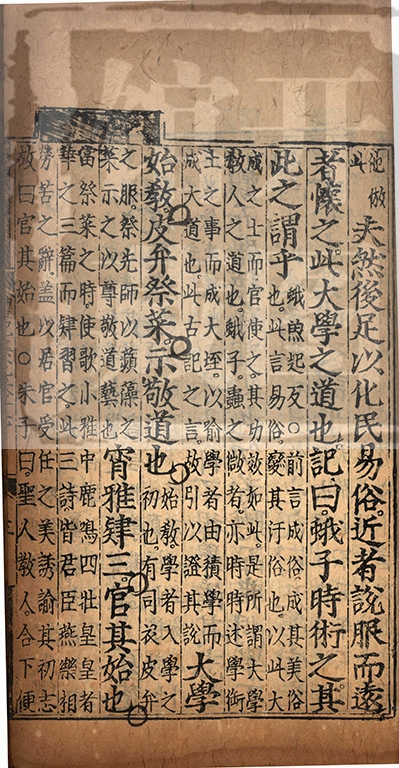 他倣
此
夫然後足以化民易俗近者說服而遠
者懷之此大學之道也記曰蛾子時術之其
此之謂乎
蛾魚起反○前言成俗成其美俗
也此言易俗變其汙俗也以此大
成之士而官使之其功效如此是所謂大學
教人之道也蛾子蟲之微者亦時時述學銜
土之事而成大垤以喻學者由積學而
成大道也此古記之言故引以證其說
大學
始教皮弁祭菜示敬道也
始教學者入學之
初也有司衣皮弁
之服祭先師以蘋藻之
菜示之以尊敬道藝也
宵雅肄三官其始也
當祭菜之時使歌小雅中鹿鳴四牡皇皇者
華之三篇而肄習之此三詩皆君臣燕樂相
勞苦之辭蓋以居官受任之美誘諭其初志
故曰官其始也○朱子曰聖人教人合下便